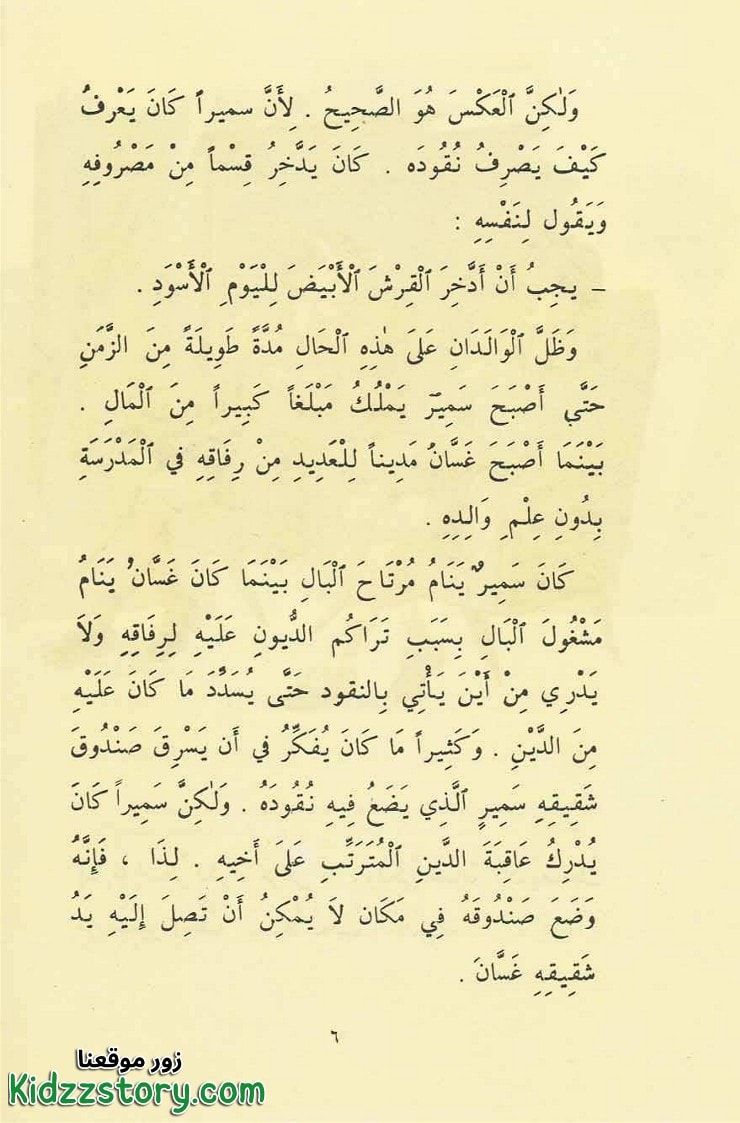 وَلٰكِنَّ ٱلْعَكْسَ هُوَ الصَّحِيحُ . لِأَنَّ سميراً كَانَ يَعْرِفُ
كَيْفَ يَصْرِفُ نُقُودَه . كَانَ يَدَّخِرُ قِسْماً مِنْ مَصْرُوفِهِ
وَيَقُول لِنَفْسِهِ :
– يجِبُ أَنْ أَدَّخِرَ ٱلْقِرْشَ ٱلْأَبْيَضَ لِلْيَوْمِ ٱلْأَسْوَدِ .
وَظَلَّ ٱلْوَالَدَانِ عَلىَ هٰذِهِ ٱلْحَالِ مُدَّةً طَوِيلَةً مِنَ الزَّمَنِ
حَتَّى أَصْبَحَ سَمِيرٌ يَمْلُكُ مَبْلَغاً كَبِيراً مِنَ ٱلْمَالِ .
بَيْنَمَا أَصْبَحَ غَسَّانُ مَدِيناً لِلْعَدِيدِ مِنْ رِفَاقِهِ في ٱلْمَدْرَسَةِ
بِدُونِ عِلْمِ وَالِدِهِ .
كَانَ سَمِيرٌ يَنَامُ مُرْتَاحَ ٱلْبَالِ بَيْنَمَا كَانَ غَسَّانُ يَنَامُ
مَشْغُولَ ٱلْبَالِ بِسَبَبِ تَرَاكُم الدُّيونِ عَلَيْهِ لِرِفَاقِهِ وَلاَ
يَدْرِي مِنْ أَيْنَ يَأْتِي بِالنقود حَتَّى يُسَدِّدَ مَا كَانَ عَلَيْهِ
مِنَ الدَّيْنِ . وَكَثِيراً مَا كَانَ يُفَكِّرُ في أَن يَسْرِقَ صَنْدُوقَ
شَقِيقِهِ سَمِيرٍ ٱلَّذِي يَضَعُ فِيهِ نُقُودَهُ . وَلٰكِنَّ سَمِيراً كَانَ
يُدْرِكُ عَاقِبَةَ الدَّينِ ٱلْمُتَرَتِّبِ عَلىَ أَخِيهِ . لِذَا ، فَإِنَّهُ
وَضَعَ صَنْدُوقَهُ فِي مَكَان لاَ يُمْكِنُ أَنْ تَصِلَ إِلَيْهِ يَدُ
شَقِيقِهِ غَسَّانَ .
٦
زور موقعنا
Kidzzstory.com